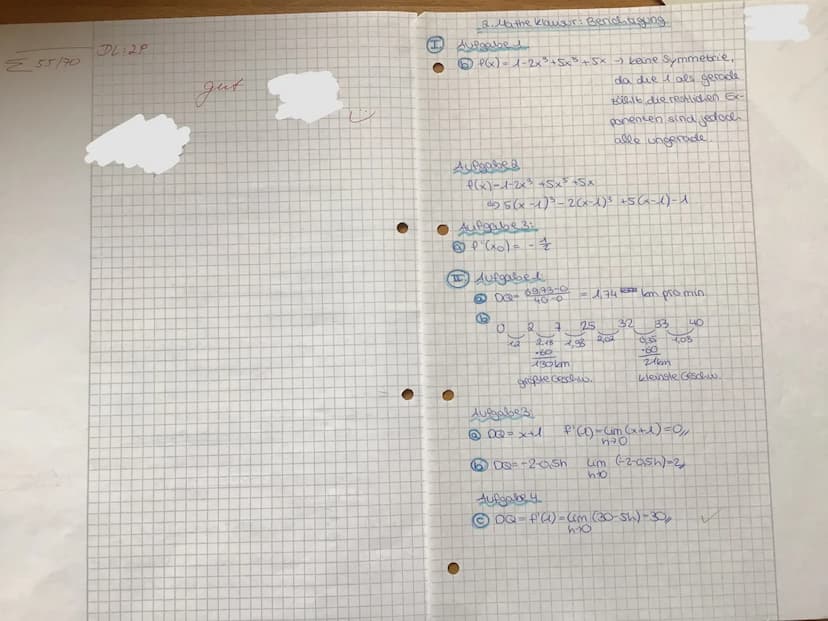 Σ 55/70
DL: 2P
gut
2. Mathe Klausur: Berichtigung
I Aufgabe 1
b f(x) = 1-2x³+5x⁵+5x → keine Symmetrie,
da die 1 als gerade
zählt, die restlichen Ex-
ponenten sind jedoch
alle ungerade.
Aufgabe 2
f(x)=1-2x³+5x⁵+5x
⇔ 5(x-1)⁵-2(x-1)³+5(x-1)-1
Aufgabe 3:
a f'(x₀) = - 1/2
II Aufgabe 1:
a DQ= 69,73-0/40-0 = 1,74 km pro min
b
0 2 7 25 32 33 40
1,2 2,18 1,98 2,02 0,35 1,03
·60 ·60
130km 21km
größte Geschw. kleinste Geschw.
Aufgabe 3:
a DQ = x+1 f'(1)=lim (x+1)=0
h→0
b DQ=-2-0,5h lim (-2-0,5h)=2
h→0
Aufgabe 4
c DQ= f'(1)=lim (30-5h)=30
h→0